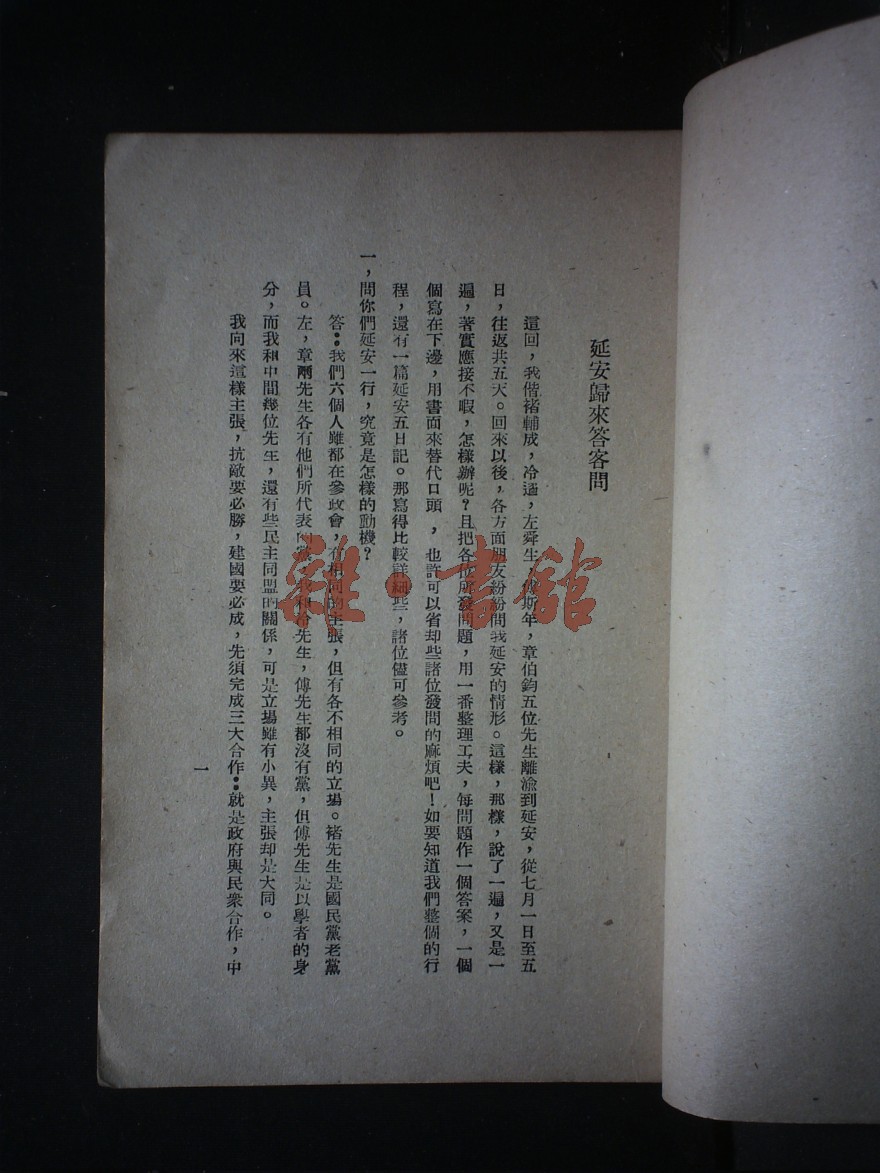 延安歸來答客問
這回，我偕褚輔成，冷遹，左舜生，傅斯年，章伯鈞五位先生離渝到延安，從七月一日至五
日，往返共五天。回來以後，各方面朋友紛紛問我延安的情形。這樣，那樣，說了一遍，又是一
遍，著實應接不暇，怎樣辦呢？且把各位所發問題，用一番整理工夫，每問題作一個答案，一個
個寫在下邊，用書面來替代口頭，也許可以省却些諸位發問的麻煩吧！如要知道我們整個的行
程，還有一篇延安五日記。那寫得比較詳細些，諸位儘可參考。
一，問你們延安一行，究竟是怎樣的動機？
答：我們六個人雖都在參政會，有相同的主張，但有各不相同的立場。褚先生是國民黨老黨
員。左，章兩先生各有他們所代表的黨，我和冷先生，傅先生都沒有黨，但傅先生是以學者的身
分，而我和中間幾位先生，還有些民主同盟的關係，可是立場雖有小異，主張却是大同。
我向來這樣主張，抗敵要必勝，建國要必成，先須完成三大合作：就是政府與民衆合作，中
一
雜·書館